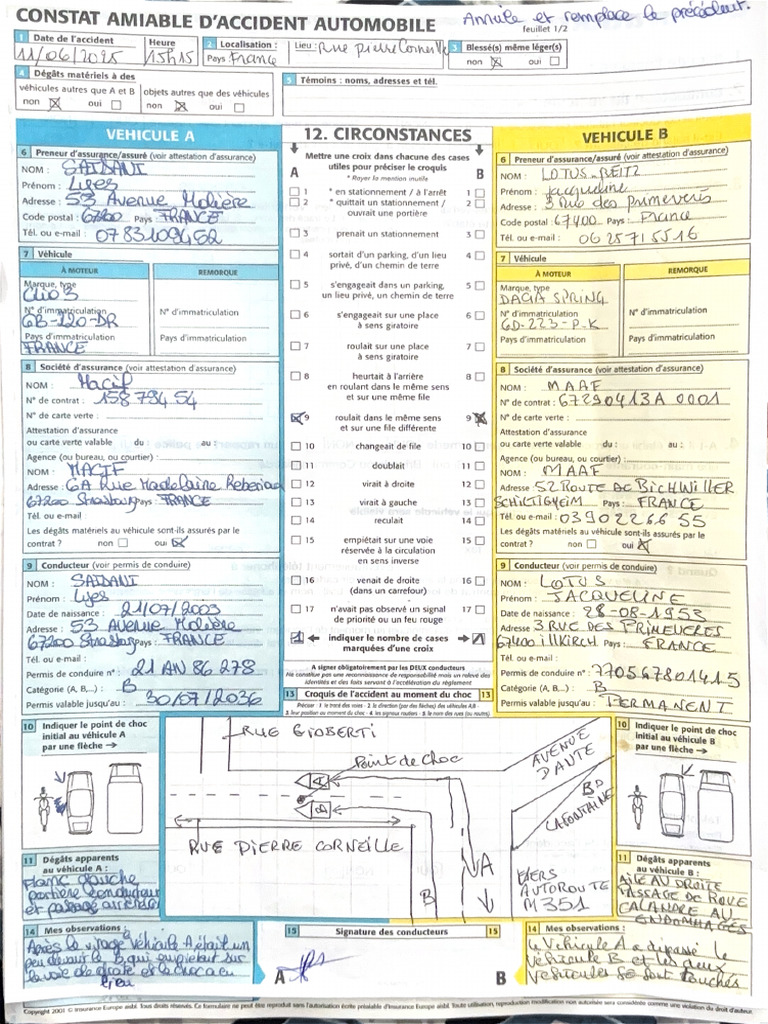 CONSTAT AMIABLE D'ACCIDENT AUTOMOBILE
Annule et remplace le précédent.
feuillet 1/2
1 Date de l'accident Heure
11/06/2025 15h15
2 Localisation : Lieu : Rue pierre Corneille
Pays : France
3 Blessé(s) même léger(s)
non oui
4 Dégâts matériels à des
véhicules autres que A et B objets autres que des véhicules
non oui non oui
5 Témoins : noms, adresses et tél.
VEHICULE A
6 Preneur d'assurance/assuré (voir attestation d'assurance)
NOM : SAIDANI
Prénom : Lyes
Adresse : 53 Avenue Molière
Code postal : 67200 Pays : FRANCE
Tél. ou e-mail : 0783109452
7 Véhicule
À MOTEUR REMORQUE
Marque, type
Clio 3
N° d'immatriculation N° d'immatriculation
GB-120-DR
Pays d'immatriculation Pays d'immatriculation
FRANCE
8 Société d'assurance (voir attestation d'assurance)
NOM : Macif
N° de contrat : 158 794 54
N° de carte verte :
Attestation d'assurance
ou carte verte valable du : au :
Agence (ou bureau, ou courtier) :
NOM : MACIF
Adresse : 6A Rue Madelaine Reberiau
67200 Strasbourg Pays : FRANCE
Tél. ou e-mail :
Les dégâts matériels au véhicule sont-ils assurés par le
contrat ? non oui
9 Conducteur (voir permis de conduire)
NOM : SAIDANI
Prénom : Lyes
Date de naissance : 21/07/2003
Adresse : 53 Avenue Molière
67200 Strasbourg Pays : FRANCE
Tél. ou e-mail :
Permis de conduire n° : 21 AN 86 278
Catégorie (A, B,...) : B
Permis valable jusqu'au : 30/07/2036
12. CIRCONSTANCES
A Mettre une croix dans chacune des cases B
utiles pour préciser le croquis
* Rayer la mention inutile
1 * en stationnement / à l'arrêt 1
2 * quittait un stationnement / 2
ouvrait une portière
3 prenait un stationnement 3
4 sortait d'un parking, d'un lieu 4
privé, d'un chemin de terre
5 s'engageait dans un parking, 5
un lieu privé, un chemin de terre
6 s'engageait sur une place 6
à sens giratoire
7 roulait sur une place 7
à sens giratoire
8 heurtait à l'arrière 8
en roulant dans le même sens
et sur une même file
9 roulait dans le même sens 9
et sur une file différente
10 changeait de file 10
11 doublait 11
12 virait à droite 12
13 virait à gauche 13
14 reculait 14
15 empiétait sur une voie 15
réservée à la circulation
en sens inverse
16 venait de droite 16
(dans un carrefour)
17 n'avait pas observé un signal 17
de priorité ou un feu rouge
1 indiquer le nombre de cases 1
marquées d'une croix
A signer obligatoirement par les DEUX conducteurs
Ne constitue pas une reconnaissance de responsabilité mais un relevé des
identités et des faits servant à l'accélération du règlement
VEHICULE B
6 Preneur d'assurance/assuré (voir attestation d'assurance)
NOM : LOTUS-REITZ
Prénom : Jacqueline
Adresse : 3 Rue des primevères
Code postal : 67400 Pays : France
Tél. ou e-mail : 0625715516
7 Véhicule
À MOTEUR REMORQUE
Marque, type
DACIA SPRING
N° d'immatriculation N° d'immatriculation
GD-223-P.K
Pays d'immatriculation Pays d'immatriculation
8 Société d'assurance (voir attestation d'assurance)
NOM : MAAF
N° de contrat : 67290413A 0001
N° de carte verte :
Attestation d'assurance
ou carte verte valable du : au :
Agence (ou bureau, ou courtier) :
NOM : MAAF
Adresse : 52 ROUTE DE BICHWILLER
SCHILTIGHEIM Pays : FRANCE
Tél. ou e-mail : 0390226655
Les dégâts matériels au véhicule sont-ils assurés par le
contrat ? non oui
9 Conducteur (voir permis de conduire)
NOM : LOTUS
Prénom : JACQUELINE
Date de naissance : 28-08-1953
Adresse : 3 RUE DES PRIMEVERES
67400 illKIRCH Pays : FRANCE
Tél. ou e-mail :
Permis de conduire n° : 770567801415
Catégorie (A, B,...) : B
Permis valable jusqu'au : PERMANENT
13 Croquis de l'accident au moment du choc 13
Préciser : 1. le tracé des voies 2. la direction (par des flèches) des véhicules A,B
3. leur position au moment du choc 4. les signaux routiers 5. le nom des rues (ou routes)
10 Indiquer le point de choc
initial au véhicule A
par une flèche
RUE GIOBERTI
Point de choc
AVENUE
DANTE
BD
LAFONTAINE
A
B
RUE PIERRE CORNEILLE
A
B
VERS
AUTOROUTE
M351
10 Indiquer le point de choc
initial au véhicule B
par une flèche
11 Dégâts apparents
au véhicule A :
Flanc gauche
portière conducteur
et passage arrière
11 Dégâts apparents
au véhicule B :
AILE AU DROITE
PASSAGE DE ROUE
CALANDRE AU
ENDOMMAGES
14 Mes observations :
Après le virage véhicule A était un
peu devant le B qui empietait sur
la voie de droite et le choc a eu
lieu
15 Signature des conducteurs 15
A B
14 Mes observations :
Le Vehicule A a dépassé le
véhicule B et les deux
Vehicules se sont touchés
Copyright 2001 © Insurance Europe aisbl. Tous droits réservés. Ce formulaire ne peut être reproduit sans l'autorisation écrite préalable d'Insurance Europe aisbl. Toute utilisation, reproduction modification non autorisée sera considérée comme une violation du droit d'auteur.